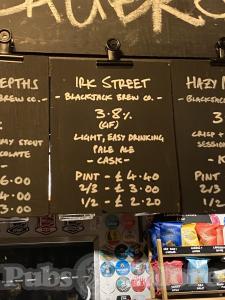 EPTHS
REW CO. -
MY STOUT
COLATE
6.00
3.00
2.00
IRK STREET
- BLACKJACK BREW CO. -
3.8%
(GF)
LIGHT, EASY DRINKING
PALE ALE
- CASK -
PINT - £ 4.40
2/3 - £ 3.00
1/2 - £ 2.20
HAZY
BLACKJACK
CRISP +
SESSION
PINT
2/3
1/2
Pubs